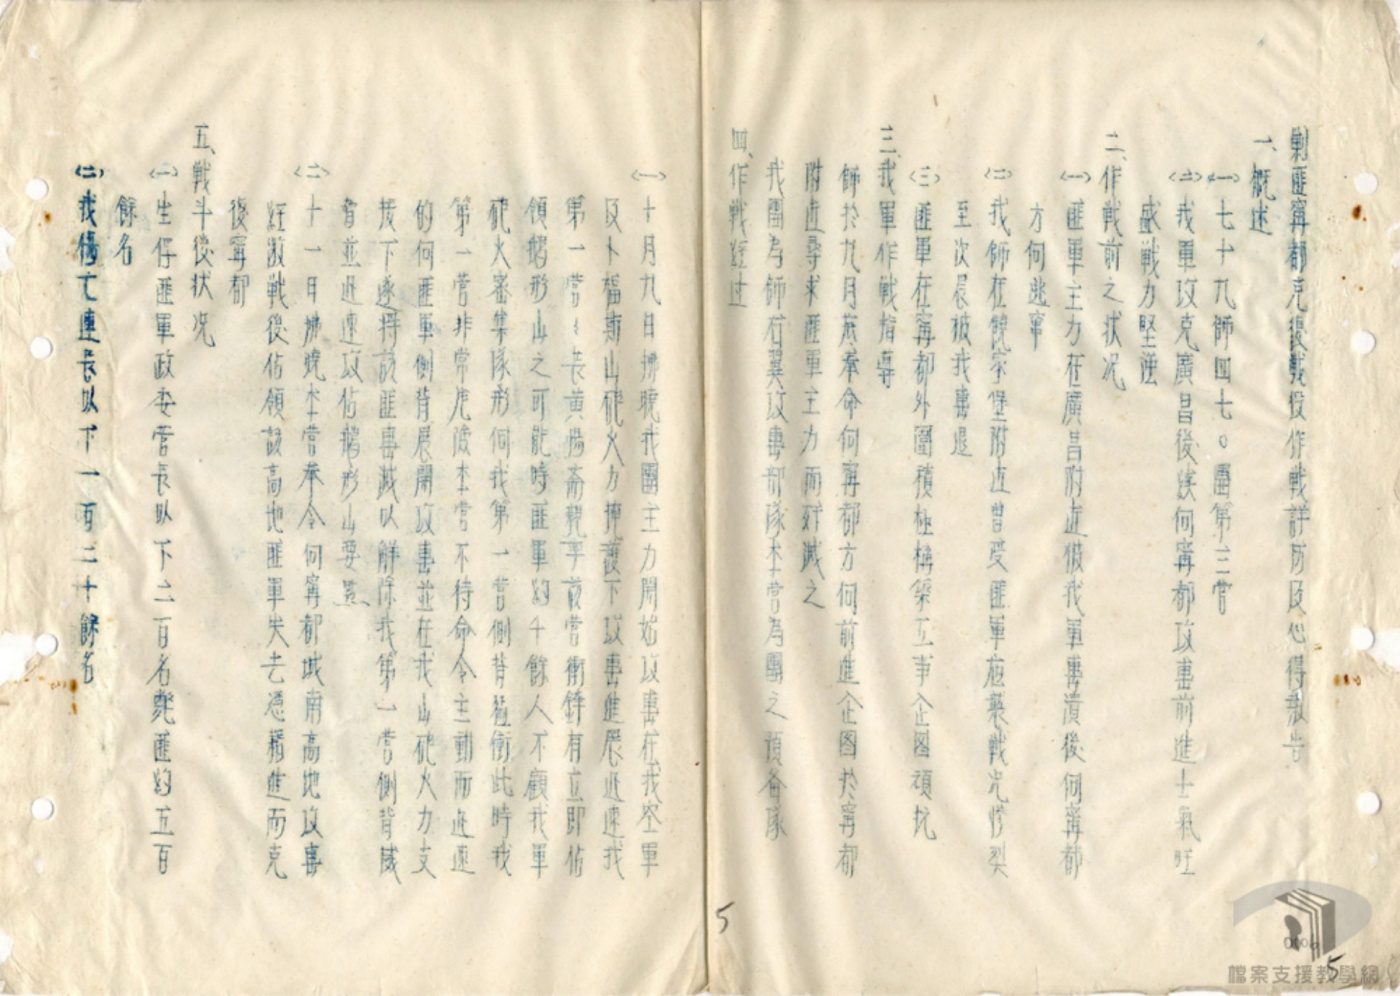 剿匪寧都克復戰役作戰詳防及心得報告
一、概述
㈠七十九師四七〇團第三營
㈡我軍攻克廣昌後續向寧都攻擊前進士氣旺
盛戰力堅强
二、作戰前之狀況
㈠匪軍主力在廣昌附近被我軍擊潰後向寧都
方向逃竄
㈡我師在饒家堡附近曾受匪軍夜襲戰況慘烈
至次晨被我擊退
㈢匪軍在寧都外圍積極構築工事企圖頑抗
三、我軍作戰指導
師於九月底奉命向寧都方向前進企图於寧都
附近尋求匪軍主力而歼滅之
我團為師右翼攻擊部隊本營為團之預备隊
四、作戰経过
㈠十月九日拂曉我團主力開始攻擊在我空軍
及卜福斯山砲火力掩護下攻擊進展迅速我
第一營營長黃揚齋親率該營衝鋒有立即佔
領鵝形山之可能時匪軍約千餘人不顧我軍
砲火密集隊形向我第一營側背猛衝此時我
第一營非常危險本營不待命令主動而迅速
的向匪軍側背展開攻擊並在我山砲火力支
援下遂將該匪擊滅以解除我第一營側背威
脅並迅速攻佔鵝形山要點
㈡十一日拂曉本營奉令向寧都城南高地攻擊
経激戰後佔領該高地匪軍失去憑藉進而克
復寧都
五、戰斗後狀況
㈠生俘匪軍政委營長以下二百名斃匪約五百
餘名
㈡我傷亡連長以下一百二十餘名
5
0006
5
檔案支援教學網